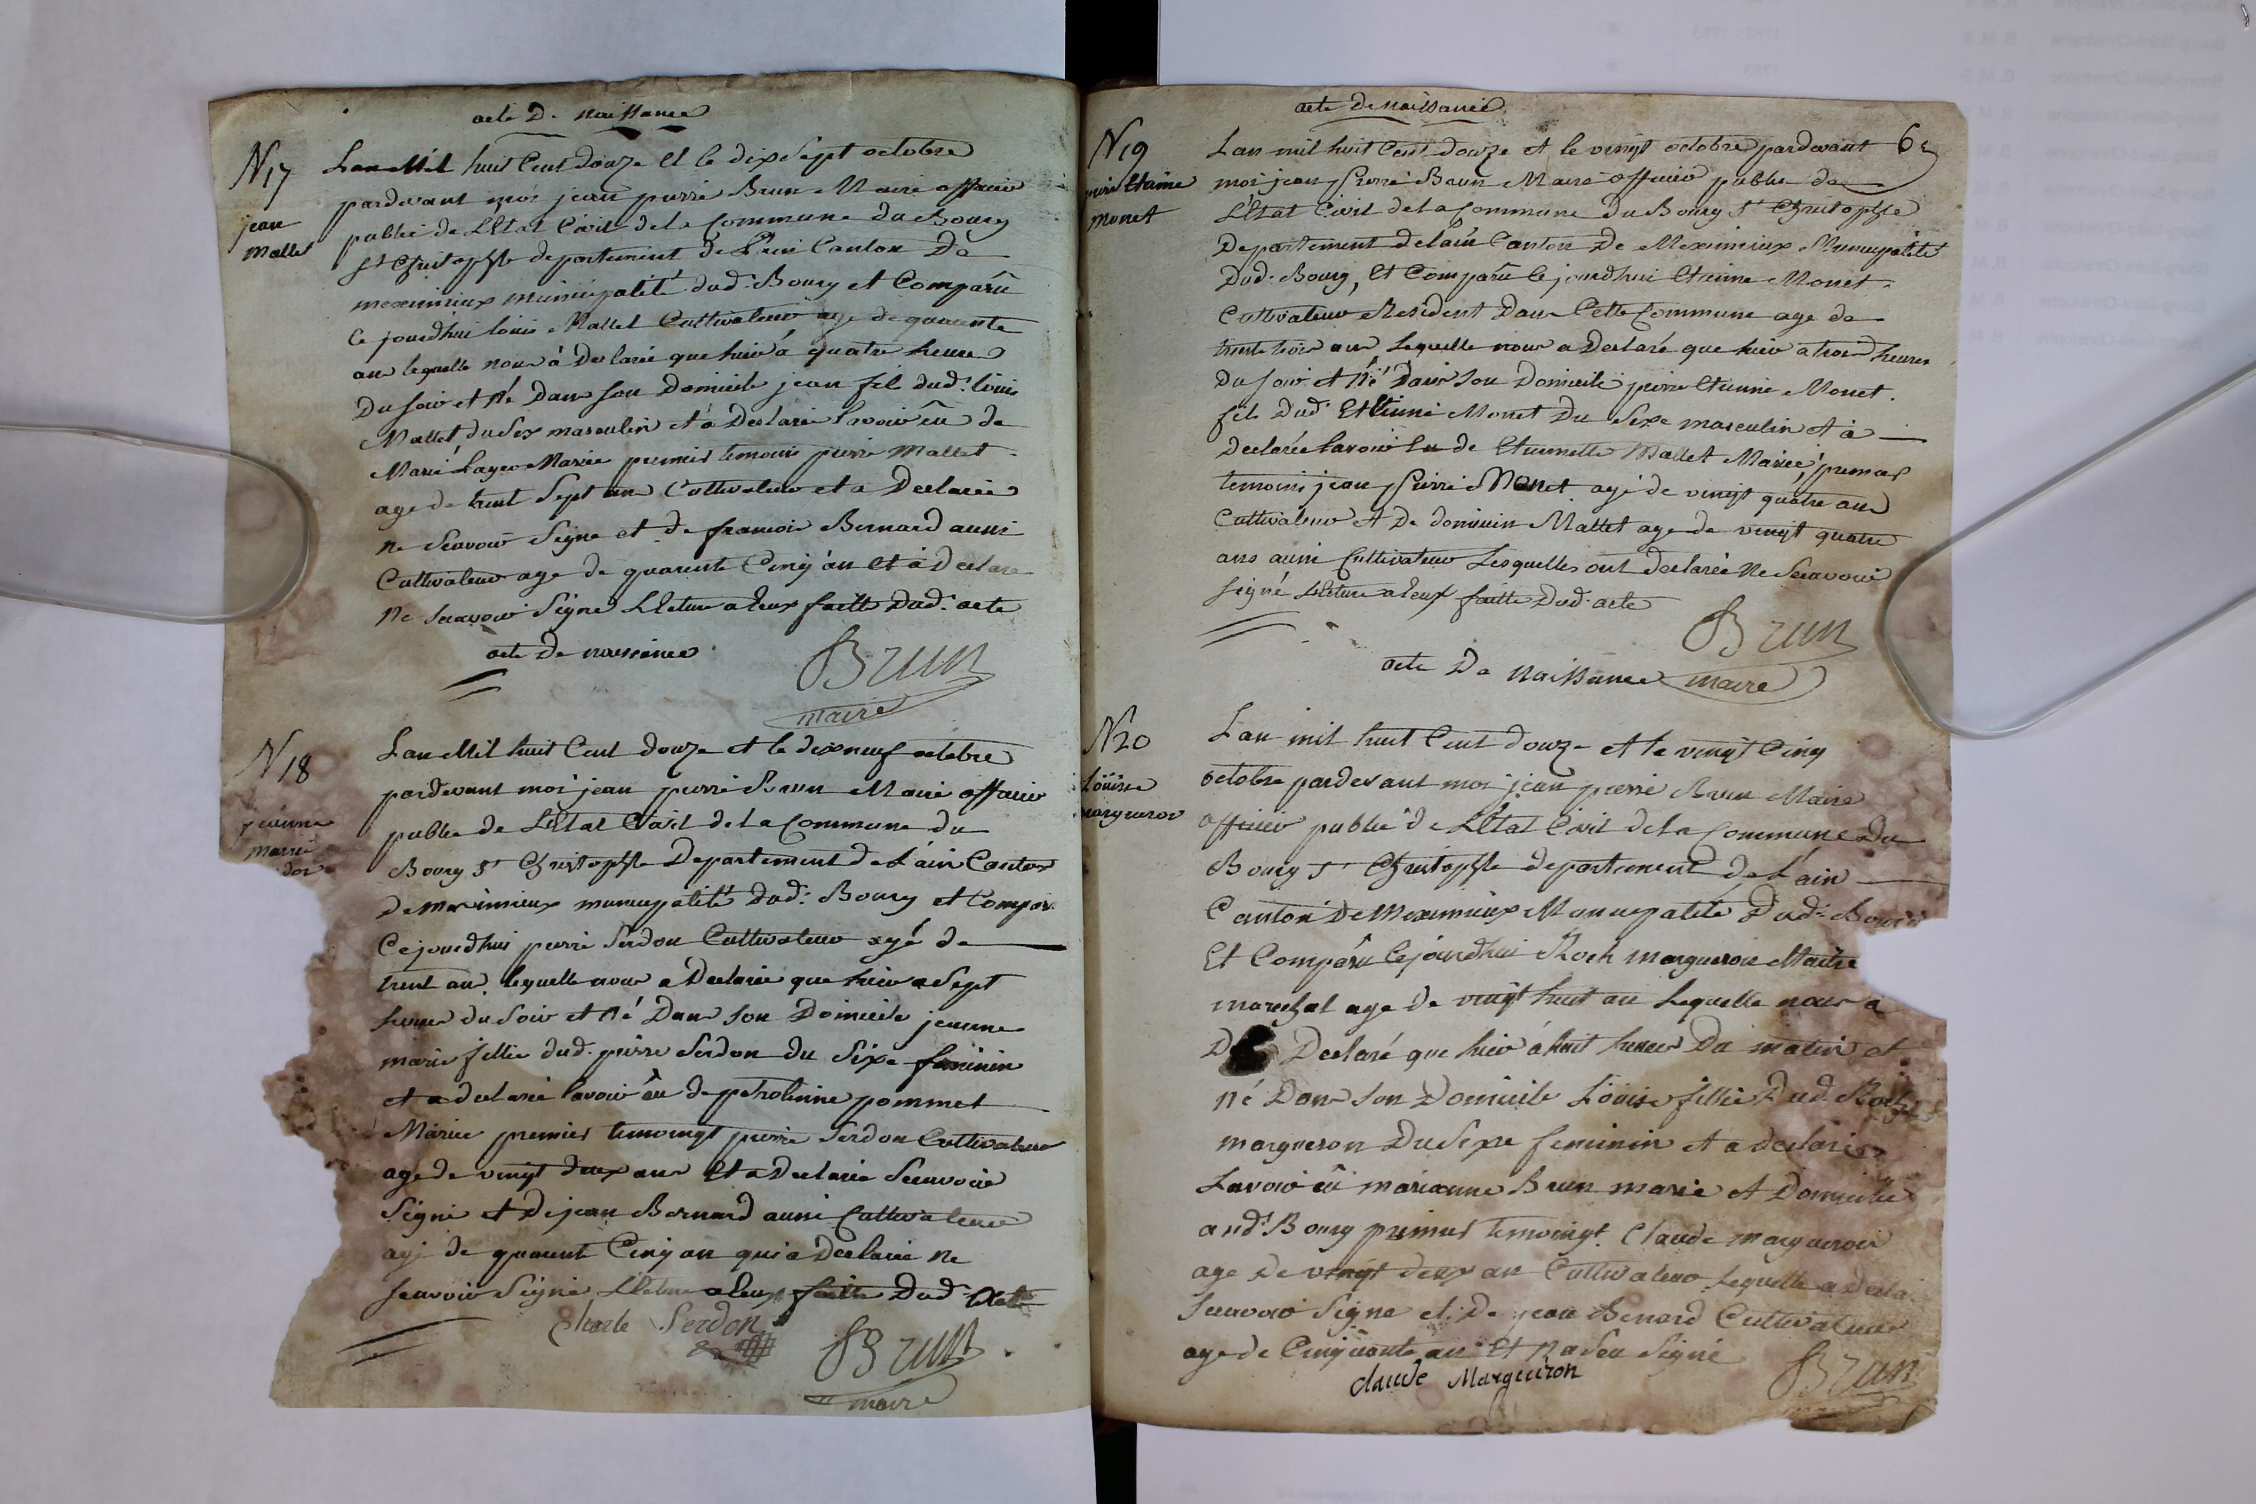 acte D. naissance
N 17
jean
mallet
Lan Mil huit Cent douze Et le dix Sept octobre
pardevant moi jean pierre Brun Maire officier
public de LEtat Civil de la Commune du Bourg
St Christophle departement de Canton De
meximieux municipalité dud. Bourg et Comparû
Ce jourdhui louis Mallet Cultivateur age de quarente
ans lequelle nous à Declaré que hier á quatre heures
Du soir et Né Dans son Domicile jean fil dud. louis
Mallet du Sex masculin et à Declaré lavoir êu de
Marie Mariée premier temoins pierre Mallet
age de trent Sept ans Cultivateur et a Declarée
ne Scavoir Signe et de francois Bernard aussi
Cultivateur age de quarente Cinq an Et à Declare
Ne Scavoir Signe LEcture a Eux faitte Dud. acte
acte De naissance
Brun
maire
N 18
jeanne
marie
don
Lan Mil huit Cent douze et le dix neuf octobre
pardevant moi jean pierre Brun Maire officier
public de LEtat Civil de la Commune du
Bourg St Christophle Departement de Lain Canton
De meximieux municipalité Dud. Bourg et Compar
Ce jourdhui pierre Serdon Cultivateur agé de
trent an lequelle nous a Declarée que hier a Sept
heures du Soir et Né Dans son Domicile jeanne
marie fillie dud. pierre Serdon du Sexe feminin
et a declaré lavoir êu de petrolinne pommet
Mariée premier temoingt pierre Serdon Cultivateur
age de vingt deux ans Et a Declarée Scavoir
Signé et De jean Bernard aussi Cultivateur
agé de quarent Cinq an qui à Declarée Ne
Scavoir Signé LEcture a Eux faitte Dud. Acte
Charle Serdon
Brun
maire
acte De naissance
6
N 19
pierre Etaine
Monet
Lan mil huit Cent douze et le vingt octobre pardevant
moi jean Pierre Brun Maire officier public de
LEtat Civil de la Commune du Bourg St Christophle
Departement de lain Canton De Meximieux Municipalité
Dud. Bourg, Et Comparû Ce jourdhui Etienne Monet
Cultivateur Resident Dans Cette Commune age de
trente trois ans Lequelle nous a Declaré que hier a trois heures
Du soir et Né Dans son Domicile pierre Etienne Monet
fils Dud. Etienne Monet Du Sexe masculin et à
Declarée lavoir Eu de Etiennette Mallet Mariée, premier
temoins jean Pierre Monet agé de vingt quatre ans
Cultivateur et De dominin Mallet age de vingt quatre
ans aussi Cultivateur Lesquelles ont declarée Ne Scavoir
Signé LEcture a Eux faitte Dud. acte
Brun
maire
acte De Naissance
N 20
Loüise
margueron
Lan mil huit Cent douze et le vingt Cinq
octobre pardevant moi jean pierre Brun Maire
officier public de LEtat Civil de la Commune du
Bourg St Christophle departement de Lain
Canton De Meximieux Municipalité Dud. Bourg
Et Comparû Ce jourdhui Roch margueron Maitre
marechal age de vingt huit an Lequelle nous a
D Declaré que hier á huit heures Du matin et
né Dans son Domicile Loüise fillie Dud. Roch
margueron Du Sexe feminin et a declaré
Lavoir êu marianne Brun marie et Domicilié
aud. Bourg premier temoingt. Claude margueron
age De vingt deux an Cultivateur Lequelle a decla
Scavoir Signe et De jean Benard Cultivateur
age de Cinquante an Et Na Seu Signé
claude Margueron
Brun